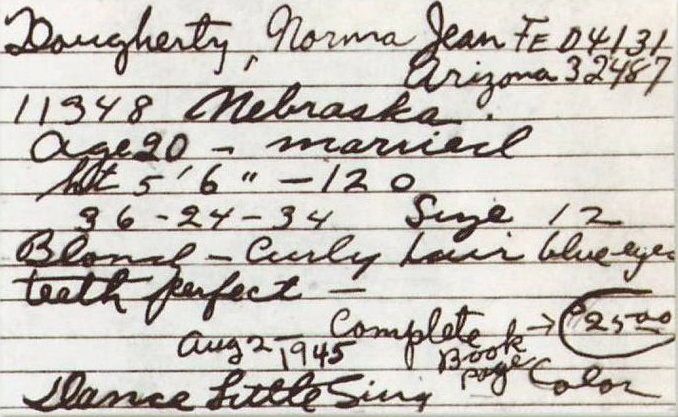 Dougherty, Norma Jean FE 04131
Arizona 32487
11348 Nebraska.
age 20 - married
hht 5'6" - 120
36-24-34 Size 12
Blond - Curly hair blue eyes
teeth perfect -
Complete → $25.00
Aug 2 1945 Book page Color
Dance Little Sing